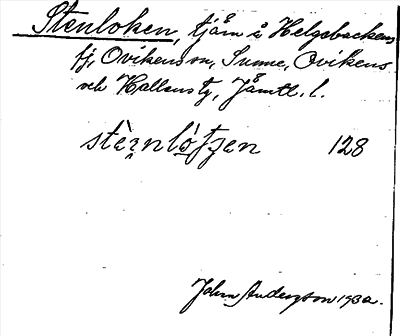 Stenloken, tjärn å Helgebackens
fj, Ovikens sn, Sunne, Ovikens
och Hallens tg, Jämtl. l.
stèrnlótjen 128
John Andersson 1932.